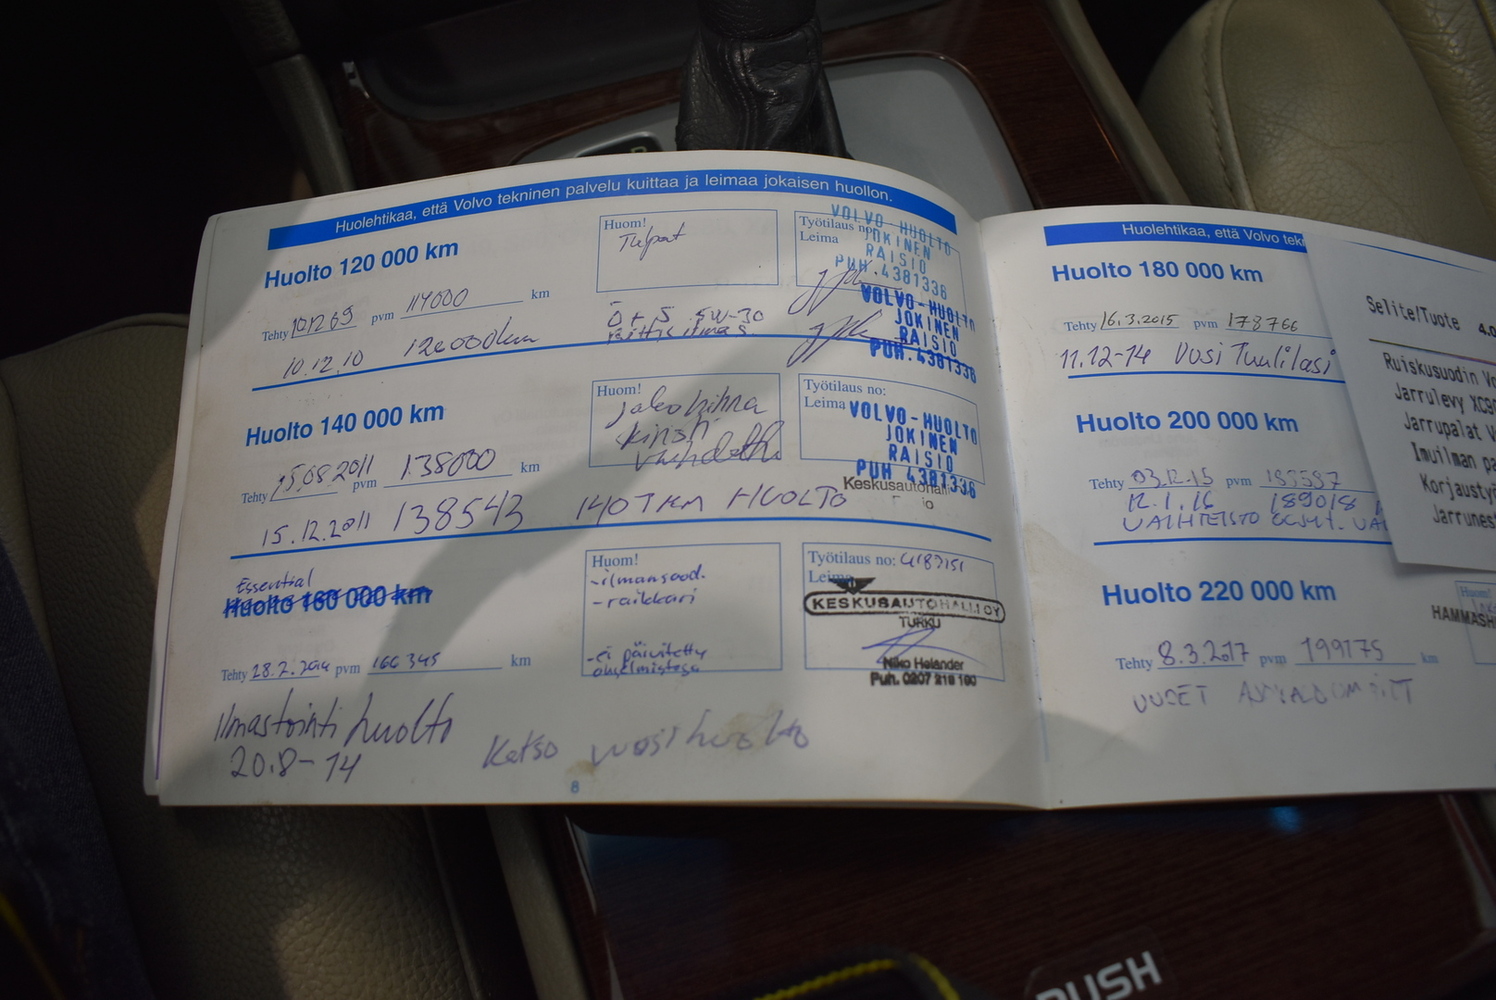 Huolehtikaa, että Volvo tekninen palvelu kuittaa ja leimaa jokaisen huollon.
Huolto 120 000 km
Huom!
Tulpat
Työtilaus no:
Leima
VOLVO-HUOLTO
JOKINEN
RAISIO
PUH. 4381336
Tehty pvm 114000 km
10.12.10 120000km
Ö + S 5W-30
VOLVO-HUOLTO
JOKINEN
RAISIO
PUH. 4381336
Huolto 140 000 km
Huom!
Jakohihna
kiristi
vaihdettu
Työtilaus no:
Leima
VOLVO-HUOLTO
JOKINEN
RAISIO
PUH 4381336
Tehty 15.08.2011 pvm 138000 km
15.12.2011 138543 140 TKM HUOLTO
Keskusautohalli
io
Essential
Huolto 160 000 km
Huom!
-ilmansuod.
-raikkari
-ei päivitetty
ohjelmistoja
Työtilaus no: 4183151
Leima
KESKUSAUTOHALLI OY
TURKU
Niko Helander
Puh. 0207 218 190
Tehty 28.2.2014 pvm 166 345 km
Ilmastointi huolto
20.8-14
Katso vuosihuolto
8
Huolehtikaa, että Volvo tek
Huolto 180 000 km
Tehty 16.3.2015 pvm 178766
11.12-14 Uusi Tuulilasi
Huolto 200 000 km
Tehty 03.12.15 pvm 183587
12.1.16 189018
VAIHTEISTO ÖLJYT. VA
Huolto 220 000 km
Huom!
HAMMASH
Tehty 8.3.2017 pvm 199175 km
UUDET
Selite/Tuote 4.0
Ruiskusuodin Vo
Jarrulevy XC90
Jarrupalat V
Imuilman pa
Korjaustyö
Jarrunest
PUSH